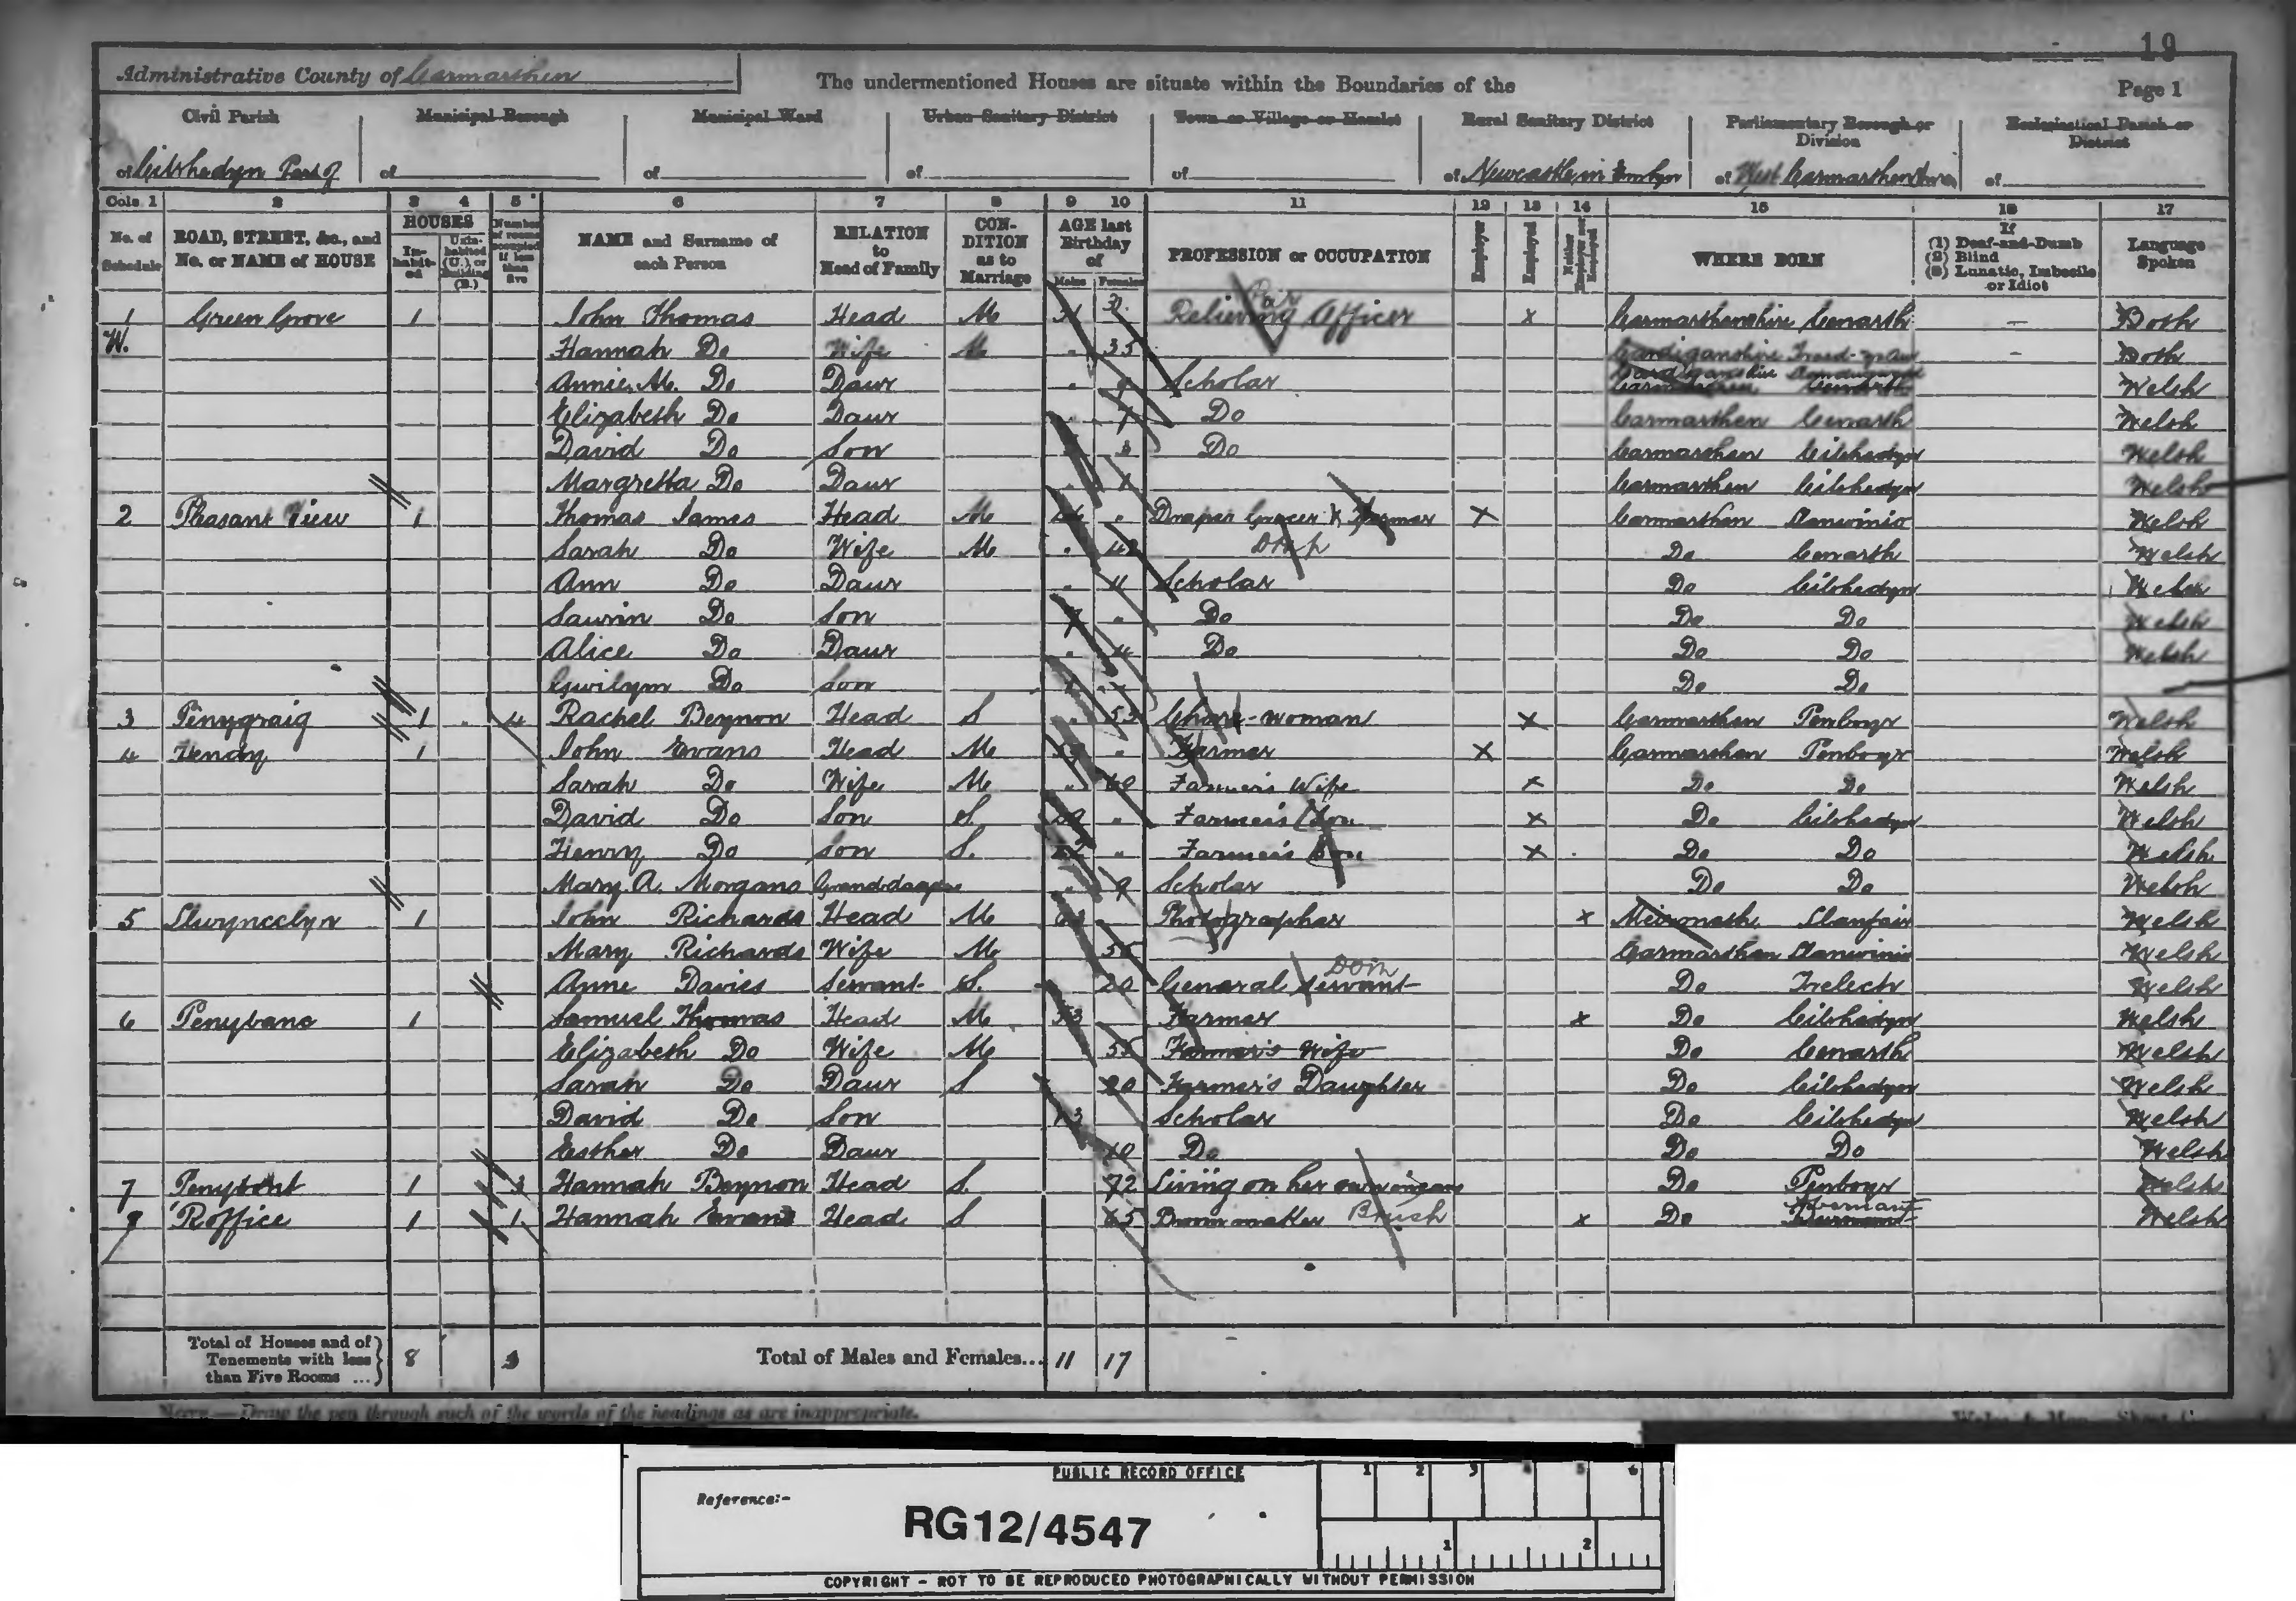 19
Administrative County of Carmarthen
The undermentioned Houses are situate within the Boundaries of the
Page 1
Civil Parish
Municipal Borough
Municipal Ward
Urban Sanitary District
Town or Village or Hamlet
Rural Sanitary District
Parliamentary Borough or Division
Ecclesiastical Parish or District
of Cilrhedyn Part of
of
of
of
of
of Newcastle in Emlyn
of West Carmarthenshire
of
Cols. 1 2 3 4 5 6 7 8 9 10 11 12 13 14 15 16 17
No. of Schedule
ROAD, STREET, &c., and No. or NAME of HOUSE
HOUSES
Inhabited
Uninhabited (U.), or Building (B.)
Number of rooms occupied if less than five
NAME and Surname of each Person
RELATION to Head of Family
CONDITION as to Marriage
AGE last Birthday of
Males Females
PROFESSION or OCCUPATION
Employer
Employed
Neither Employer nor Employed
WHERE BORN
If (1) Deaf-and-Dumb (2) Blind (3) Lunatic, Imbecile or Idiot
Language Spoken
1 Green Grove 1 John Thomas Head M Relieving Officer x Carmarthenshire Cenarth Both
W. Hannah Do Wife M 35 Cardiganshire Both
Annie M. Do Daur 9 Scholar Cardiganshire Welsh
Elizabeth Do Daur 7 Do Carmarthen Cenarth Welsh
David Do Son 3 Do Carmarthen Cilrhedyn Welsh
Margretta Do Daur 1 Carmarthen Cilrhedyn Welsh
2 Pleasant View 1 Thomas James Head M Draper Grocer & Farmer x Carmarthen Llanwinio Welsh
Sarah Do Wife M Do Cenarth Welsh
Ann Do Daur 11 Scholar Do Cilrhedyn Welsh
Saurin Do Son 7 Do Do Do Welsh
Alice Do Daur 4 Do Do Do Welsh
Gwilym Do Son Do Do
3 Penygraig 1 4 Rachel Beynon Head S 53 Chare-woman x Carmarthen Penboyr Welsh
4 Hendy 1 John Evans Head M Farmer x Carmarthen Penboyr Welsh
Sarah Do Wife M 60 Farmer's Wife x Do Do Welsh
David Do Son S. Farmer's Son x Do Cilrhedyn Welsh
Henry Do Son S. Farmer's Son x Do Do Welsh
Mary A. Morgans 9 Scholar Do Do Welsh
5 Llwyncelyn 1 John Richards Head M Photographer x Meirioneth Llanfair Welsh
Mary Richards Wife M 55 Carmarthen Llanwinio Welsh
Anne Davies Servant S. 20 General Servant Dom Do Trelech Welsh
6 Penybanc 1 Samuel Thomas Head M Farmer x Do Cilrhedyn Welsh
Elizabeth Do Wife M 55 Farmer's Wife Do Cenarth Welsh
Sarah Do Daur S 20 Farmer's Daughter Do Cilrhedyn Welsh
David Do Son 13 Scholar Do Cilrhedyn Welsh
Esther Do Daur 10 Do Do Do Welsh
7 Penybont 1 3 Hannah Beynon Head S. 72 Living on her own means Do Penboyr Welsh
8 P.office 1 1 Hannah Evans Head S 65 Broom maker Brush x Do Abernant Welsh
Total of Houses and of Tenements with less than Five Rooms ... 8 3
Total of Males and Females... 11 17
NOTE.—Draw the pen through such of the words of the headings as are inappropriate.
PUBLIC RECORD OFFICE
1 2 3 4 5 6
Reference:-
RG12/4547
1 2
COPYRIGHT - NOT TO BE REPRODUCED PHOTOGRAPHICALLY WITHOUT PERMISSION